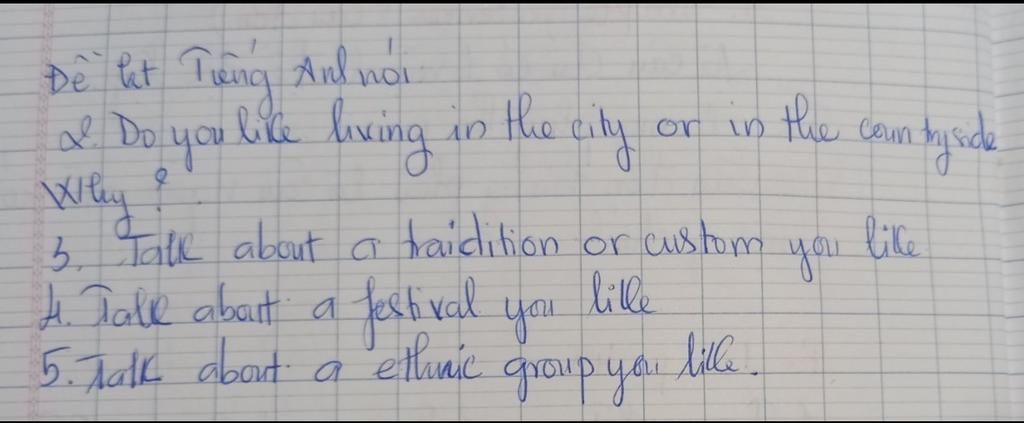 Đề tiếng Anh nói
2. Do you like living in the city or in the countryside
Why?
3. Talk about a traidition or custom you like
4. Talk about a festival you like
5. Talk about a ethnic group you like.